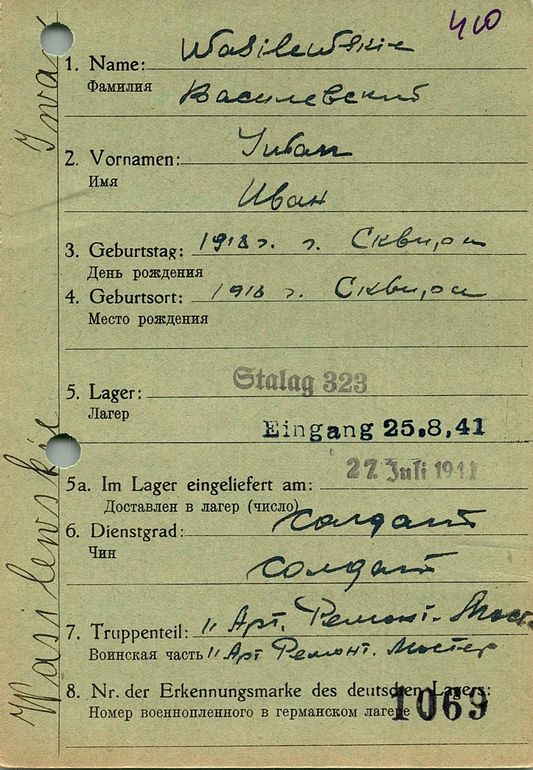 410
1. Name: Wasilewskie
Фамилия Василевский
2. Vornamen: Iwan
Имя Иван
3. Geburtstag: 1918 г. г. Сквира
День рождения
4. Geburtsort: 1918 г. Сквира
Место рождения
5. Lager: Stalag 323
Лагер
Eingang 25.8.41
27. Juli 1941
5a. Im Lager eingeliefert am:
Доставлен в лагер (число)
6. Dienstgrad: солдат
Чин солдат
7. Truppenteil: 11 Арт. Ремонт.
Воинская часть 11 Арт Ремонт. Мастер
8. Nr. der Erkennungsmarke des deutschen Lagers:
Номер военнопленного в германском лагере 1069
Wasilewskie Iwa